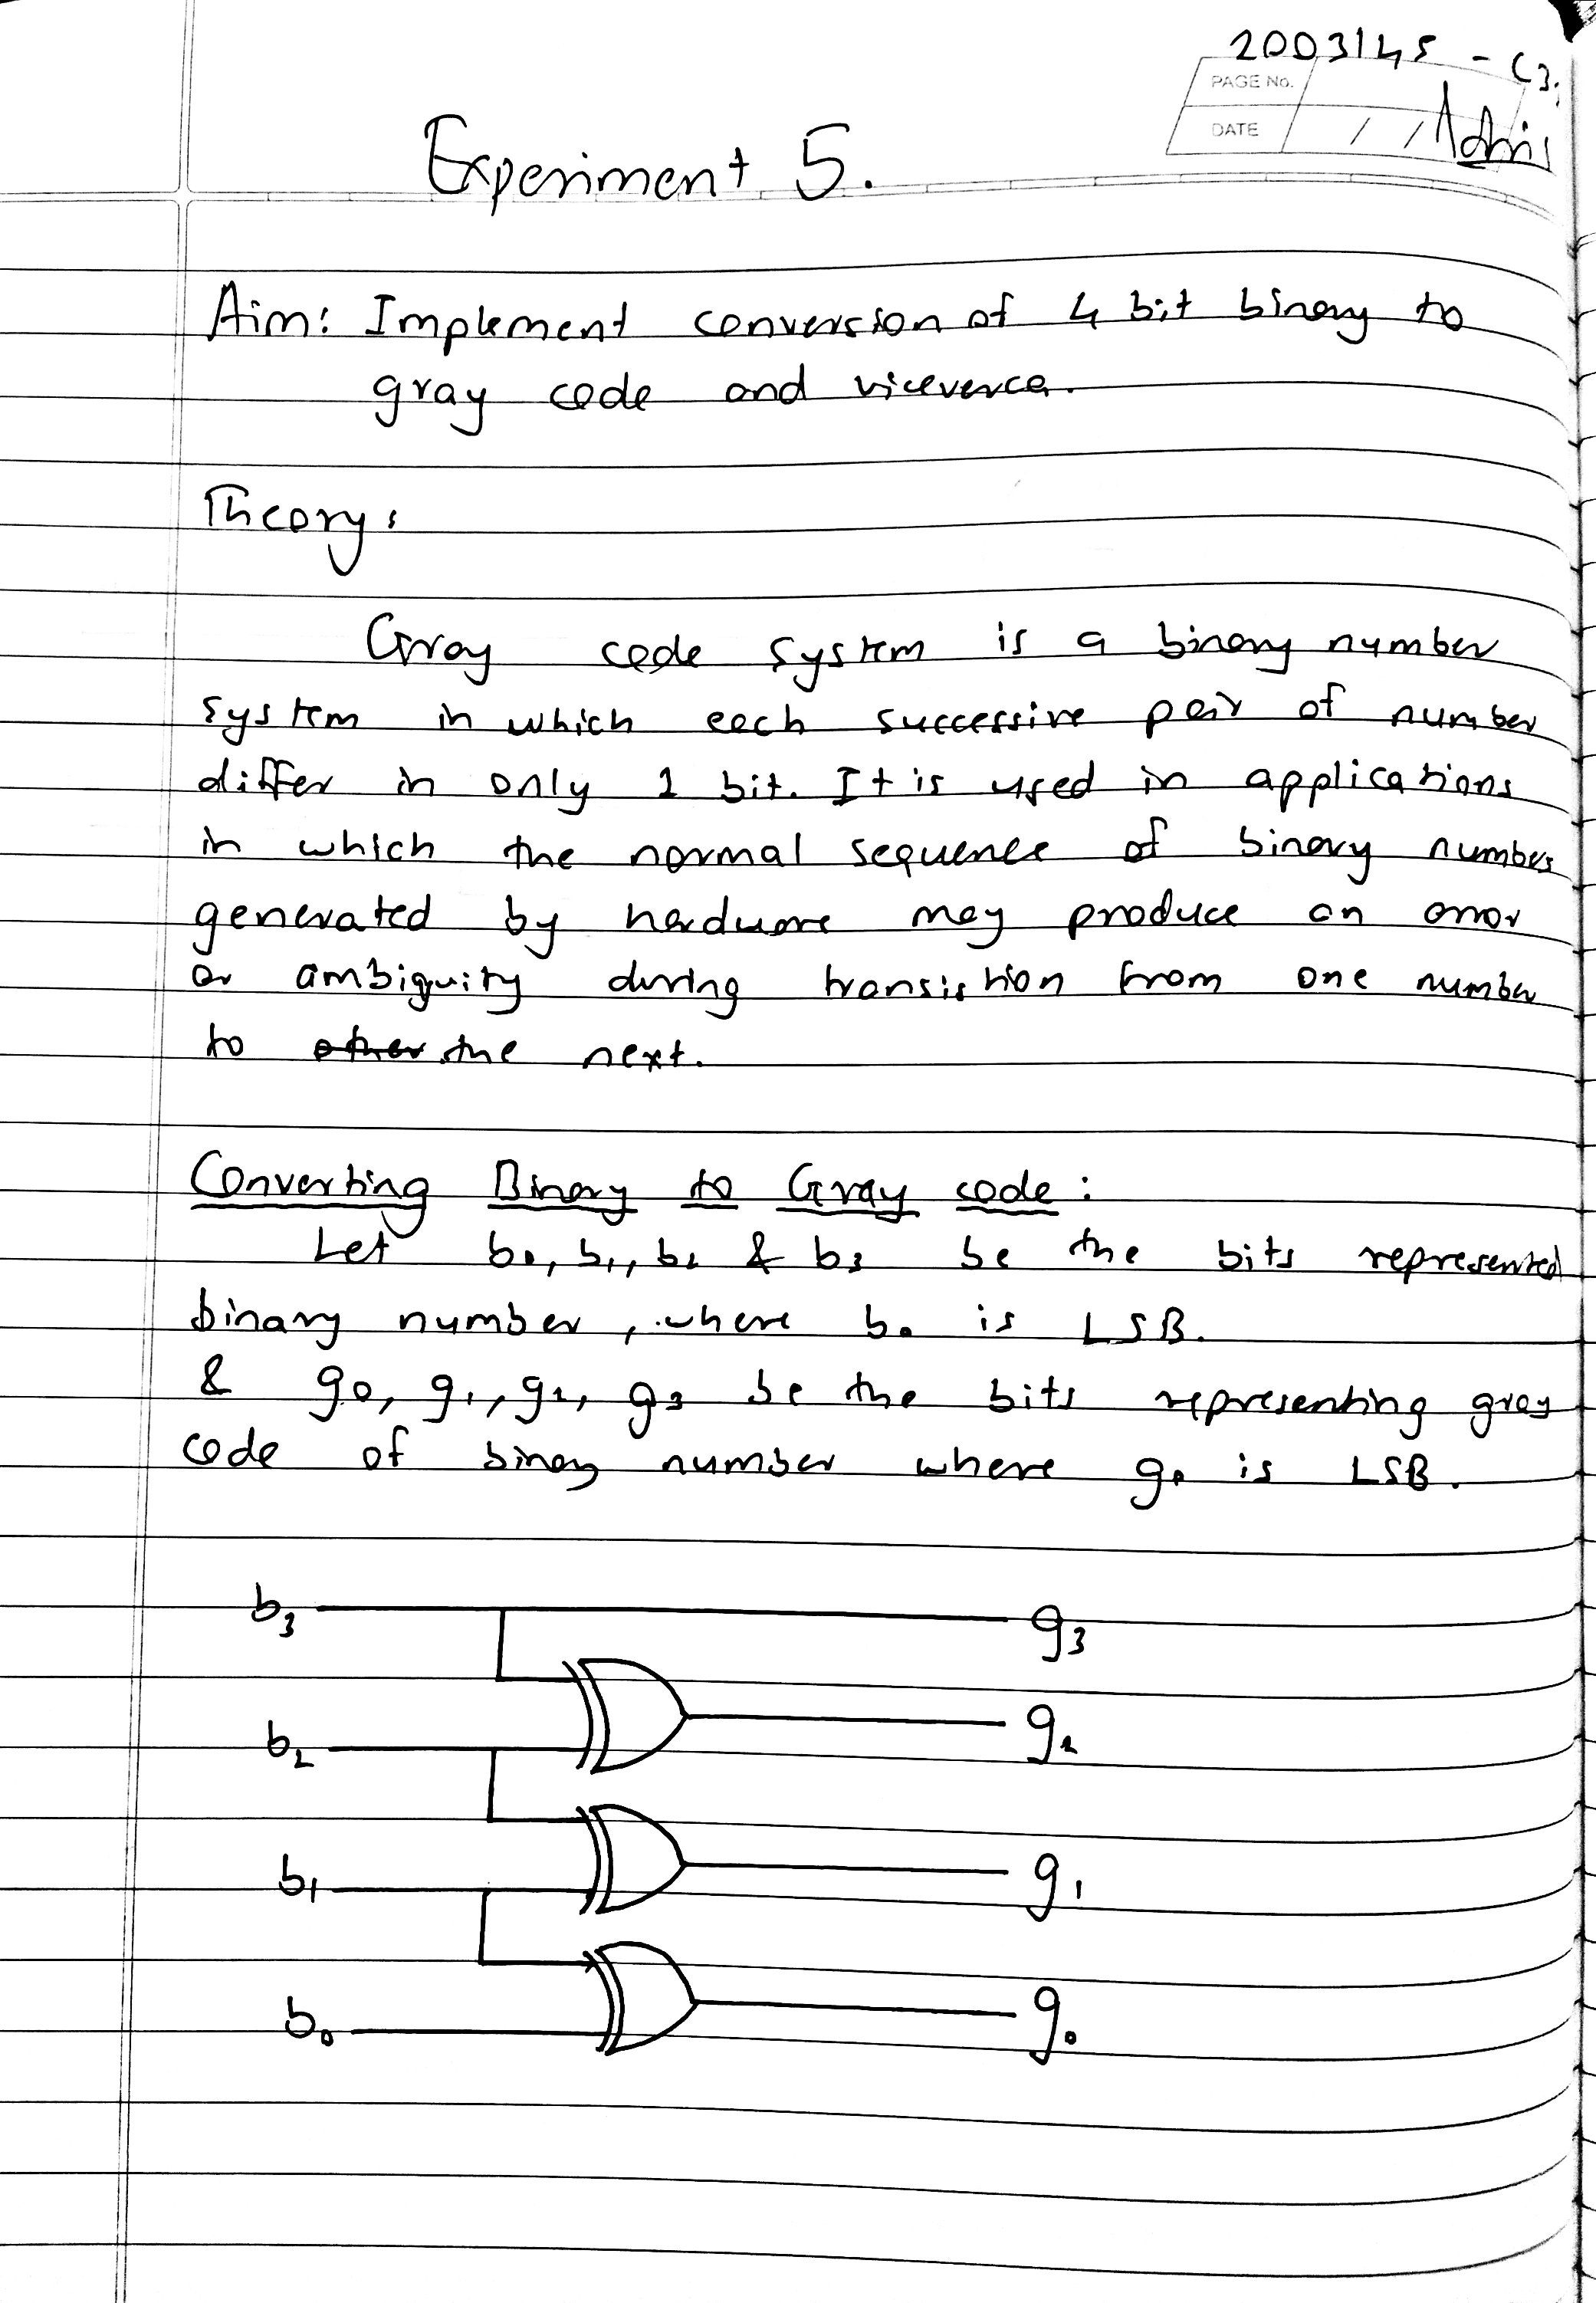 2003145 - C3.
PAGE No.
DATE / /
Experiment 5.
Aim: Implement conversion of 4 bit binary to
gray code and viceverca.
Theory:
Gray code system is a binary number
system in which each successive pair of number
differ in only 1 bit. It is used in applications
in which the normal sequence of binary number
generated by hardware may produce an error
or ambiguity during transistion from one number
to other the next.
Converting Binary to Gray code:
Let b0, b1, b2 & b3 be the bits represented
binary number, where b0 is LSB.
& g0, g1, g2, g3 be the bits representing gray
code of binary number where g0 is LSB.
b3 g3
b2 g2
b1 g1
b0 g0